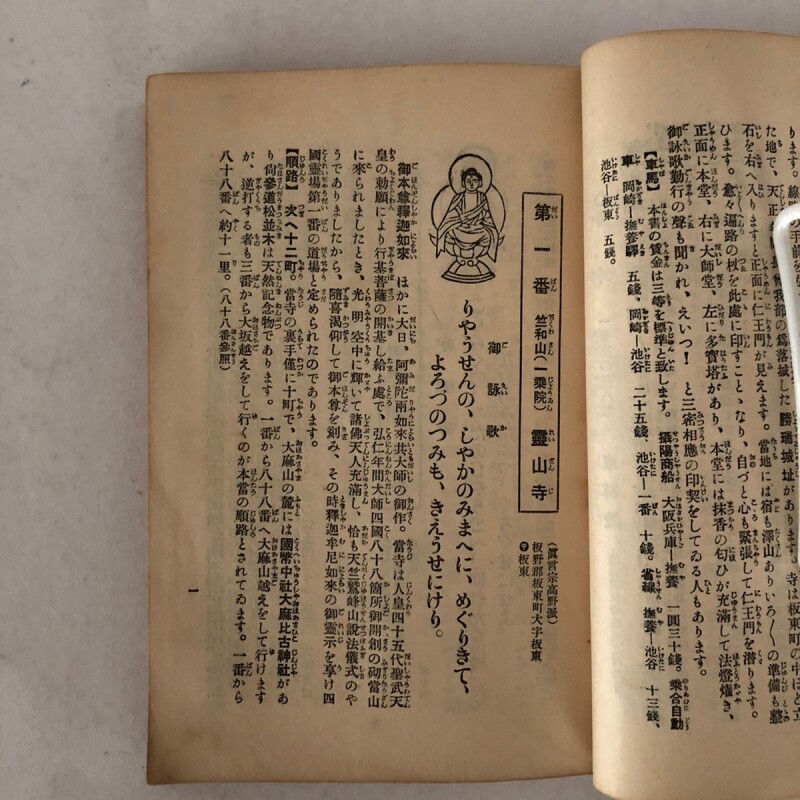 ります。
た地で、天正
石を右へ入りますと正面に仁王門が見えます。當地には宿も澤山ありいろ〳〵の準備も整
ひます。愈々遍路の杖を此處に印すことゝなり、自づと心も緊張して仁王門を潜ります。
正面に本堂、右に大師堂、左に多寶塔があり、本堂には抹香の匂ひが充滿して法燈燿き、
御詠歌勤行の聲も聞かれ、えいつ！と三密相應の印契をしてゐる人もあります。
【車馬】本書の賃金は三等を標準と致します。攝陽商船 大阪兵庫―撫養 一圓三十錢。乘合自動
車 岡崎―撫養驛 五錢、岡崎―池谷 二十五錢、池谷―一番 十錢。省線 撫養―池谷 十三錢、
池谷―板東 五錢。
第一番 竺和山(一乘院) 靈山寺
(眞言宗高野派)
板野郡板東町大字板東
〒板東
御詠歌
りやうせんの、しやかのみまへに、めぐりきて、
よろづのつみも、きえうせにけり。
御本尊釋迦如來 ほかに大日、阿彌陀兩如來共大師の御作。當寺は人皇四十五代聖武天
皇の勅願により行基菩薩の開基し給ふ處で、弘仁年間大師四國八十八箇所御開創の砌當山
に來られましたとき、光明空中に輝いて諸佛天人充滿し、恰も天竺鷲峰山説法儀式のや
うでありましたから、隨喜渴仰して御本尊を刻み、その時釋迦牟尼如來の御靈示を享け四
國靈場第一番の道場と定められたのであります。
【順路】次へ十二町。當寺の裏手僅に十町で、大麻山の麓には國幣中社大麻比古神社があ
り尙參道松並木は天然記念物であります。一番から八十八番へ大麻山越えをして行けます
が、逆打する者も三番から大坂越えをして行くのが本當の順路とされてゐます。一番から
八十八番へ約十一里。(八十八番參照)
一